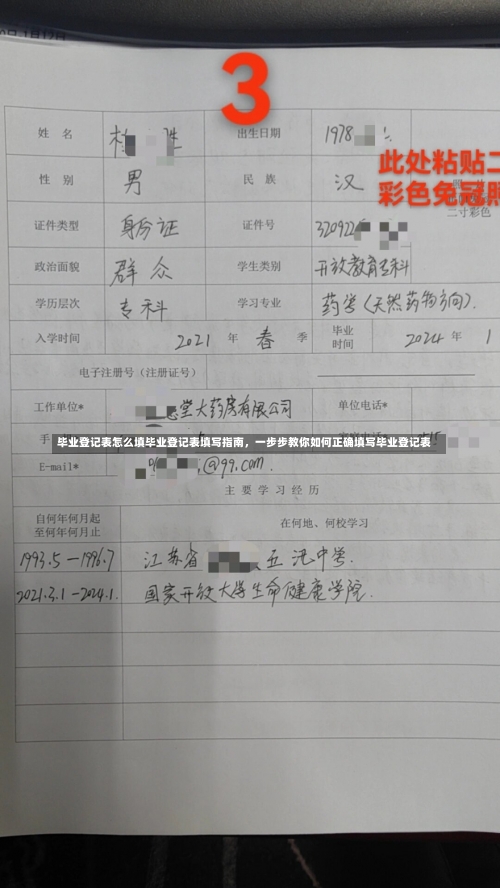 3
姓 名 杜 胜 出生日期 1978
此处粘贴二
彩色免冠照
二寸彩色
性 别 男 民 族 汉
证件类型 身份证 证件号 320922
政治面貌 群众 学生类别 开放教育专科
学历层次 专科 学习专业 药学(天然药物方向).
入学时间 2021 年 春 季 毕业时间 2024 年 1
电子注册号(注册证号)
工作单位* 堂大药房有限公司 单位电话*
手
毕业登记表怎么填毕业登记表填写指南，一步步教你如何正确填写毕业登记表
E-mail* @99.com.
主 要 学 习 经 历
自何年何月起
至何年何月止
在何地、何校学习
1993.5—1996.7 江苏省 五汛中学.
2021.3.1—2024.1. 国家开放大学生命健康学院.